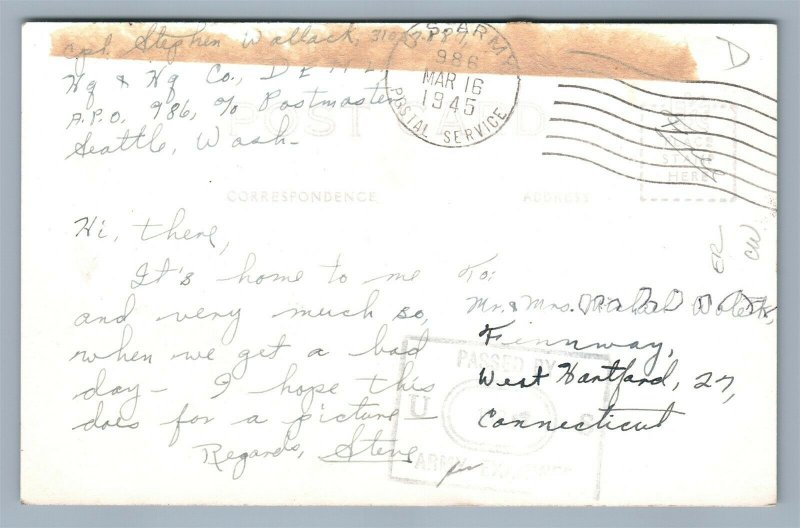 Cpl. Stephen Wallack,
U.S. ARMY
986
MAR 16
1945
POSTAL SERVICE
Hq & Hq Co.,
A.P.O. 986, % Postmaster
Seattle, Wash-
POST CARD
PLACE
STAMP
HERE
CORRESPONDENCE
ADDRESS
D
ER
CW
Hi, there,
It's home to me
and very much so,
when we get a bad
day - I hope this
does for a picture -
Regards, Steve
To:
Mr. & Mrs.
Finnway,
West Hartford, 27,
Connecticut
PASSED BY
U S
ARMY EXAMINER